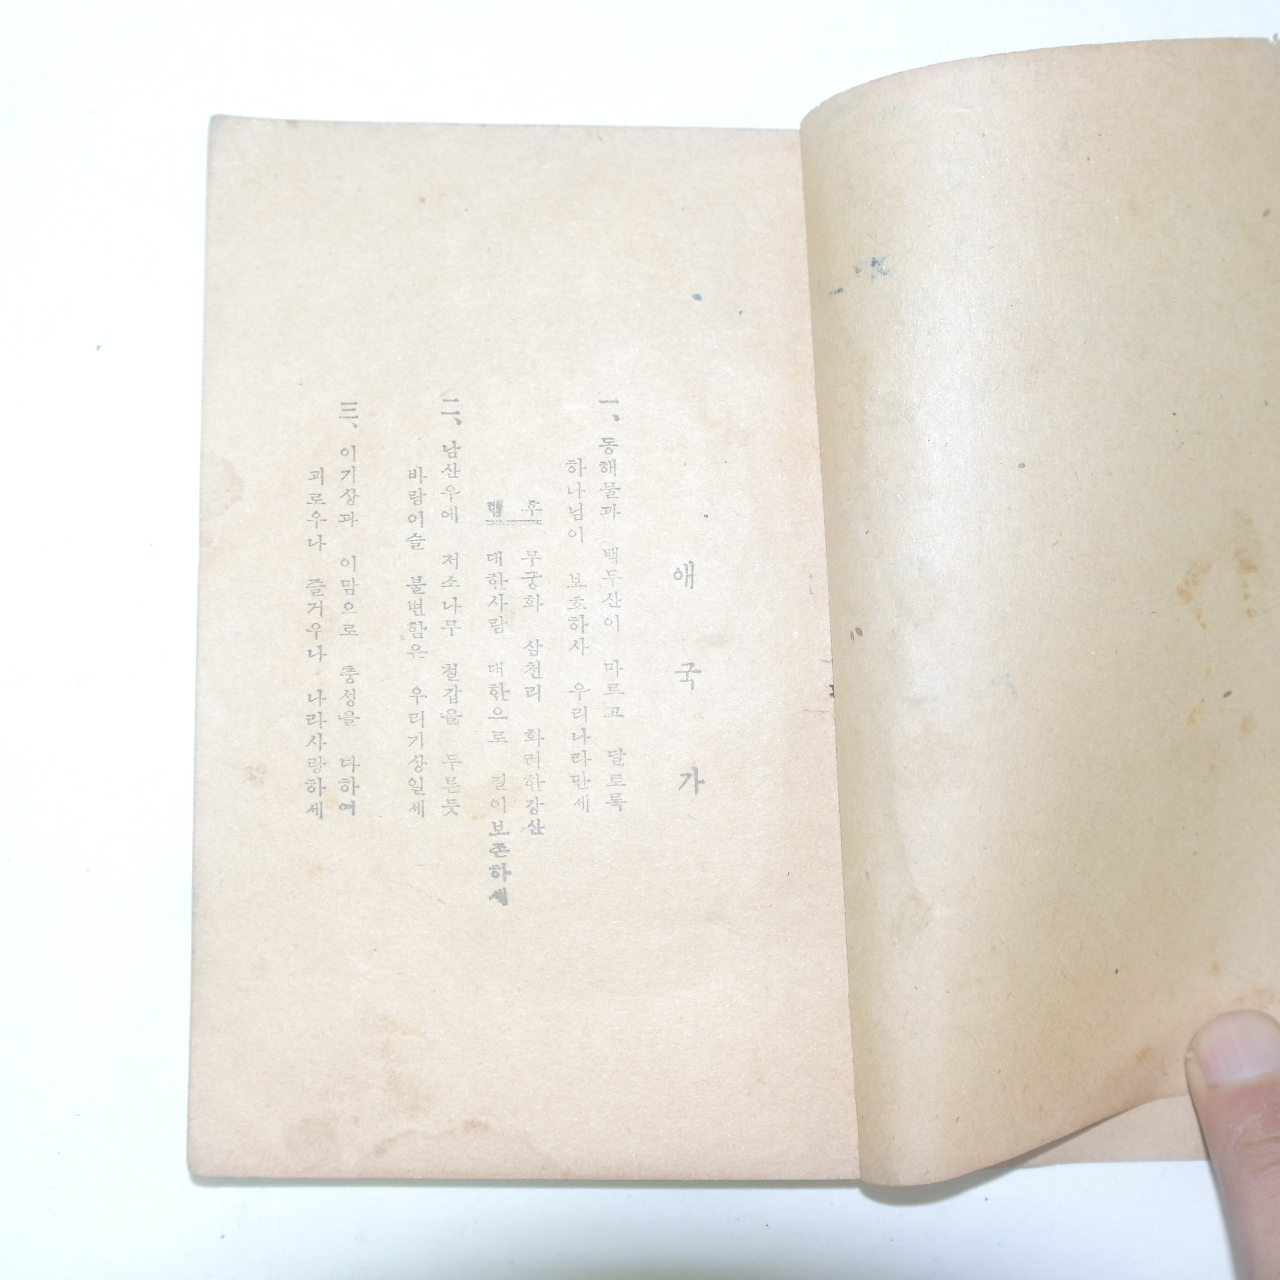 애국가
一、동해물과 백두산이 마르고 달토록
하나님이 보호하사 우리나라만세
후렴
무궁화 삼천리 화려한강산
대한사람 대한으로 길이보존하세
二、남산우에 저소나무 철갑을 두른듯
바람이슬 불변함은 우리기상일세
三、이기상과 이맘으로 충성을 다하여
괴로우나 즐거우나 나라사랑하세